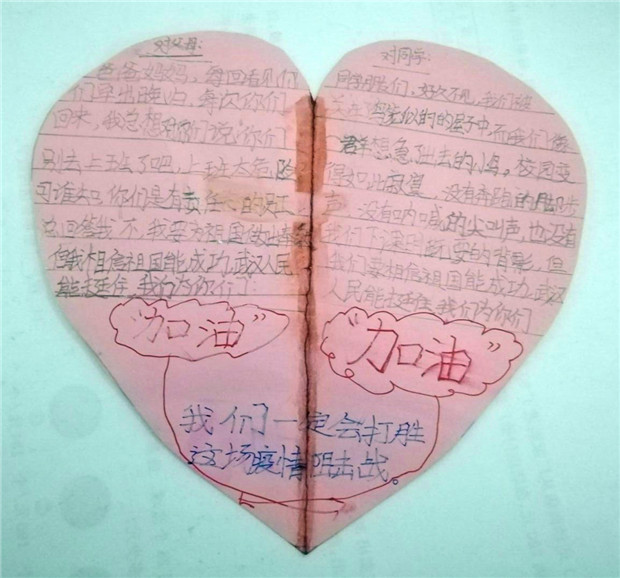 对父母:
爸爸妈妈，每回看见你
们早出晚归，每次你们
回来，我总想对你们说"你们
别去上班了吧，上班太危险
可谁知，你们是有责任心的员工
总回答我，不，我要为祖国做出
但我相信祖国能成功，武汉人民
能挺住，我们为你们:
"加油"
对同学:
同学朋友们，好久不见，我们被
关在 似的的屋子中，而我们像
群想急 出去的小鸟。校园变
得如此寂寞，没有奔跑的脚步
声，没有呐喊的尖叫声，也没有
我们下课 玩耍的背影，但
我们要相信祖国能成功，武汉
人民能挺住，我们为你们
"加油"
我们一定会打胜
这场疫情阻击战。